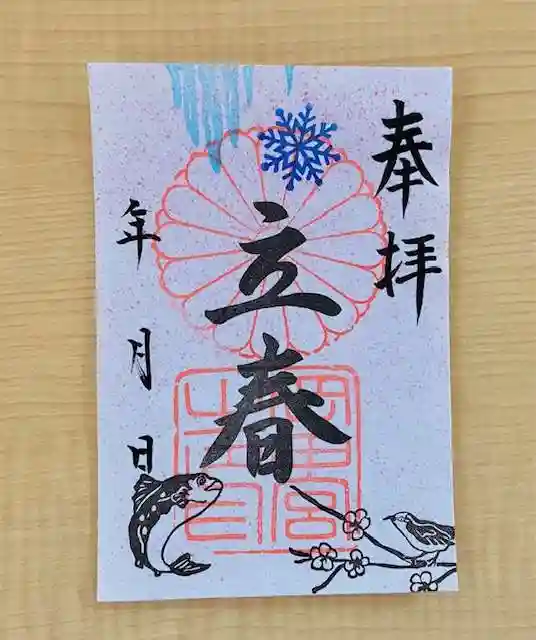 奉拝
立春
年月日